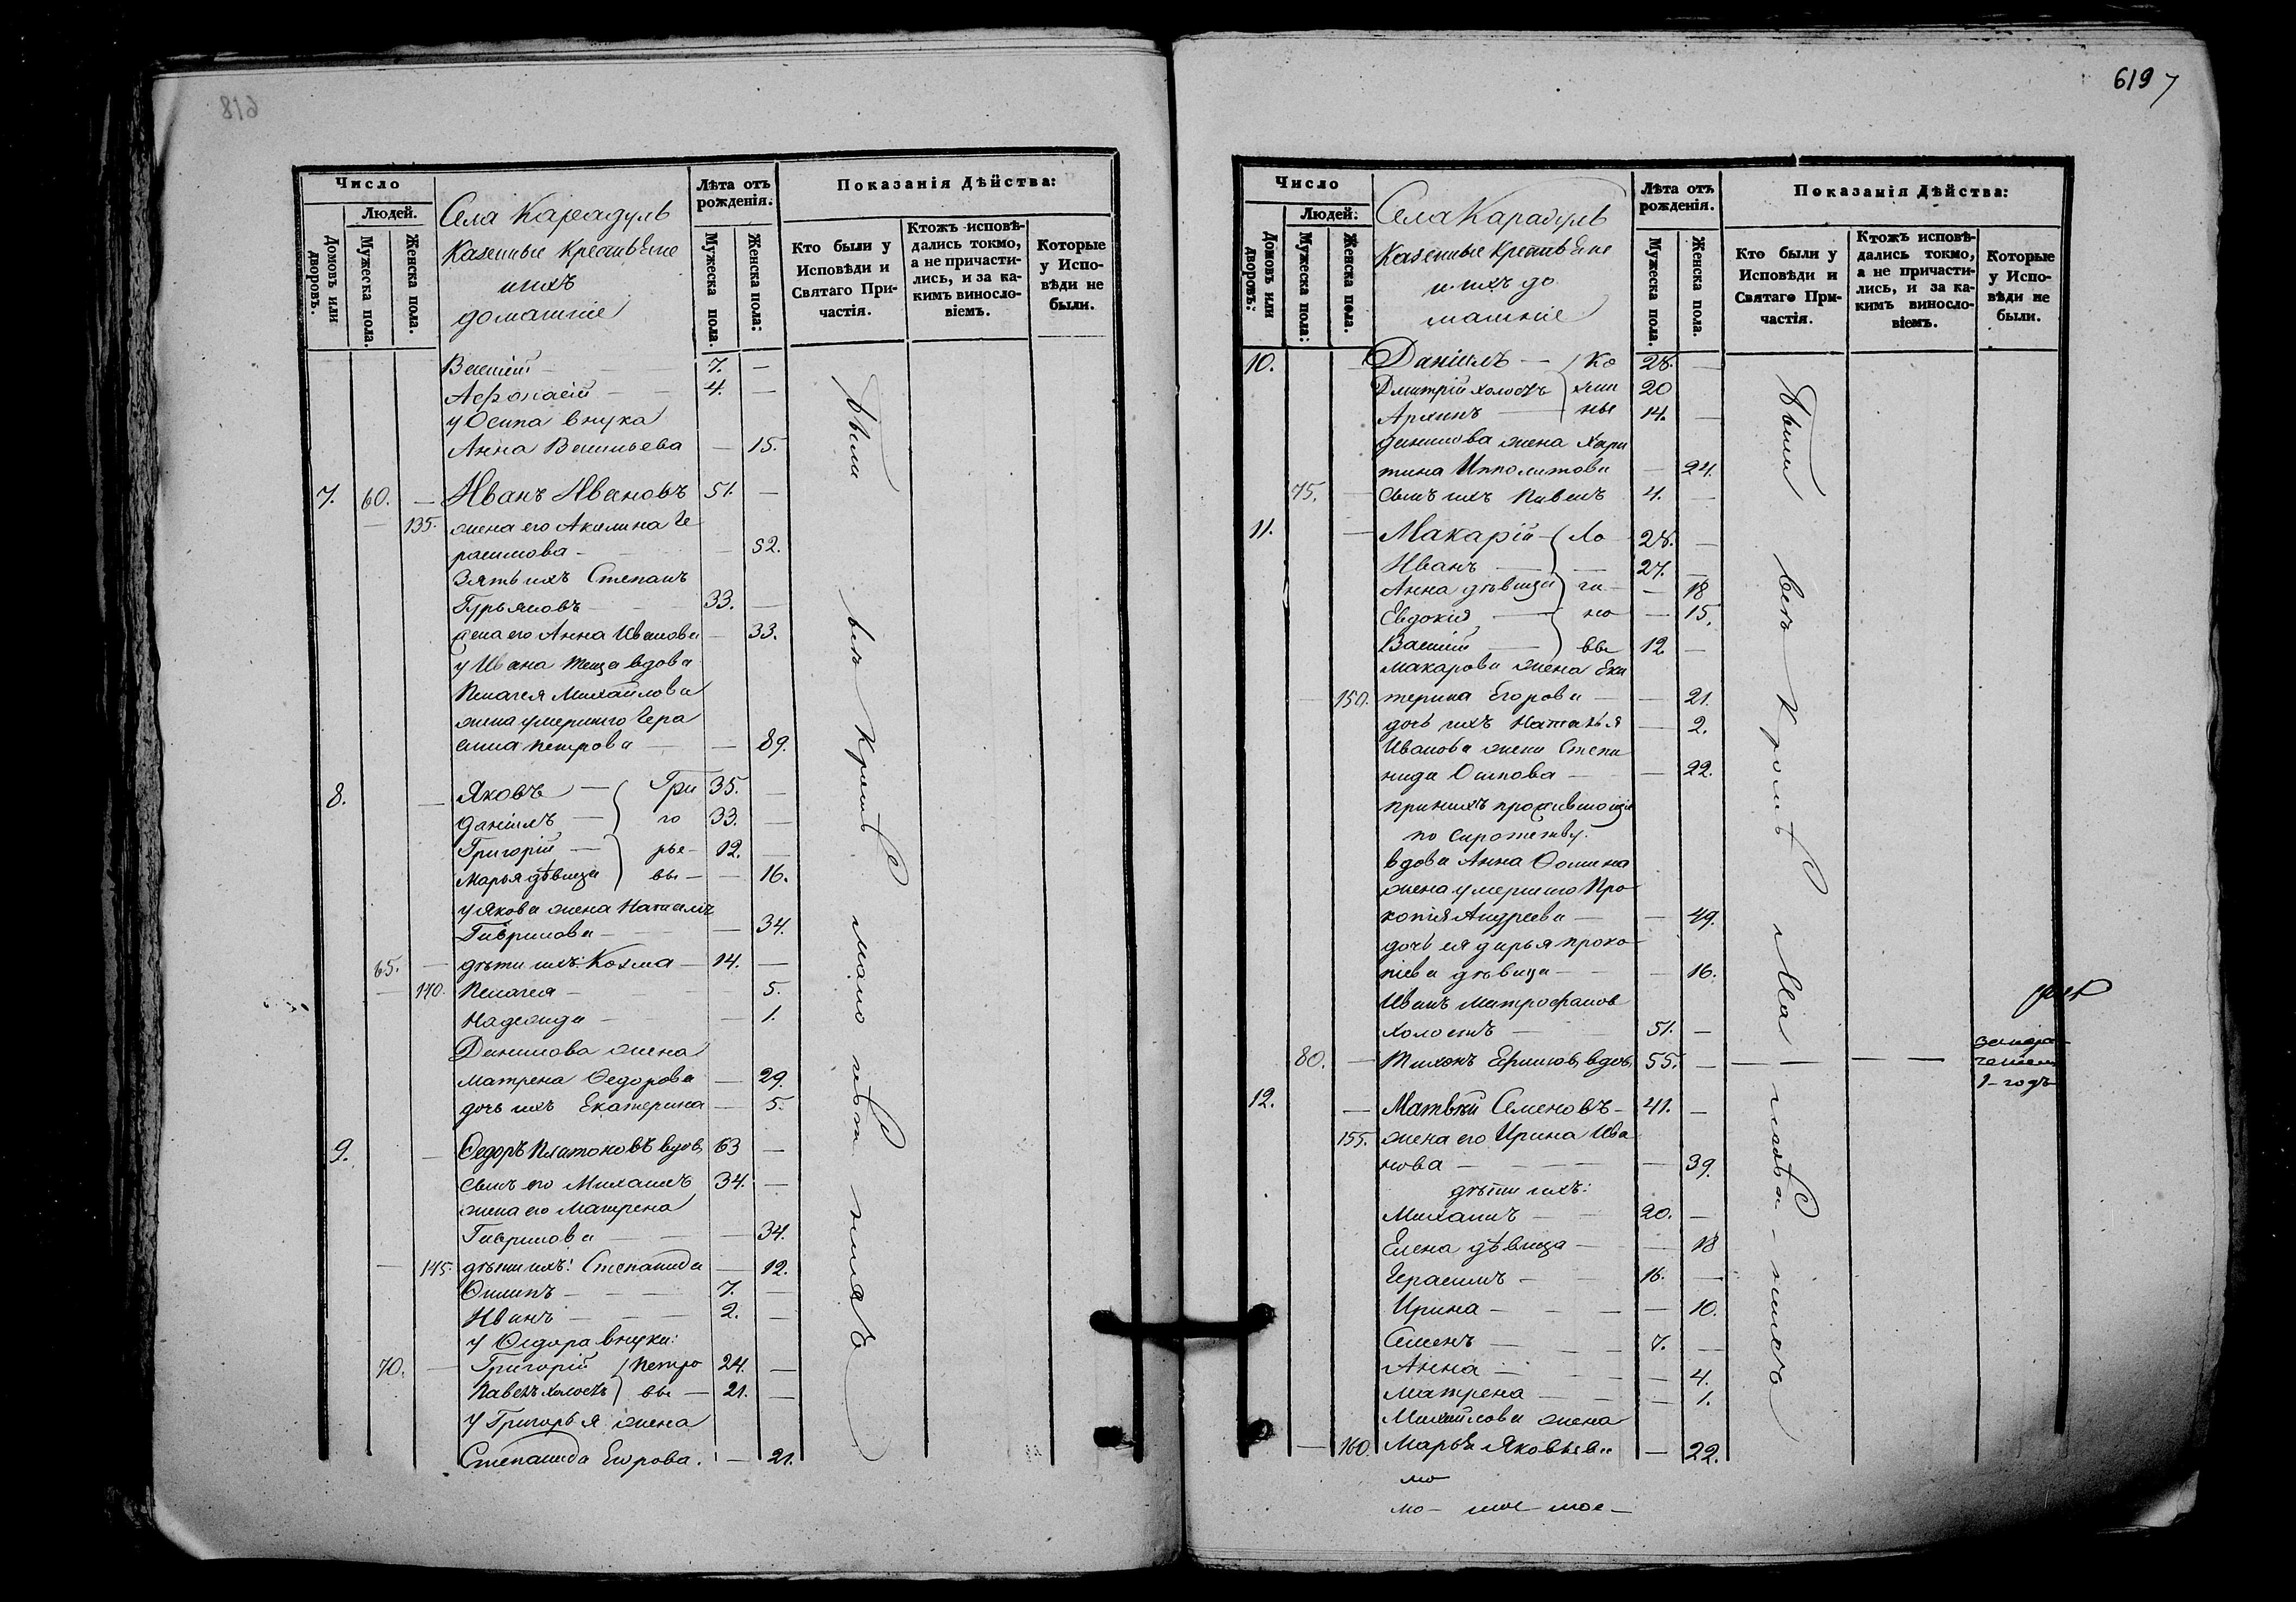 618
Число
Людей.
Домовъ или дворовъ.
Мужеска пола.
Женска пола.
Села Карадуль
Казенные Крестьяне
ихъ
домашніе
Лѣта отъ рожденія.
Мужеска пола.
Женска пола:
Показанія Дѣйства:
Кто были у Исповѣди и Святаго Причастія.
Ктожъ исповѣдались токмо, а не причастились, и за какимъ винословіемъ.
Которые у Исповѣди не были.
Василій — 7. —
Афонасій — 4. —
у Осипа внука
Анна Васильева — 15.
7. 60. — Иванъ Ивановъ 51. —
— 135. жена его Акилина Ге
расимова — — 52.
Зять ихъ Степанъ
Гурьяновъ — 33. —
жена его Анна Иванова — 33.
у Ивана теща вдова
Пелагея Михайлова
жена умершаго Гера
сима Петрова — — 89.
8. — Яковъ — Гри 35. —
Даніилъ — го 33. —
Григорій — рье 12. —
Марья дѣвица вы — — 16.
у Якова жена Наталья
Гаврилова — — 34.
65. — дѣти ихъ: Козма — 14. —
— 140. Пелагея — 5.
Надежда — — 1.
Данилова жена
Матрена Ѳедорова — 29.
дочь ихъ Екатерина — 5.
9. — Ѳедоръ Платоновъ вдов, 63 —
сынъ его Михаилъ 34. —
жена его Матрена
Гаврилова — — 34.
— 145. дѣти ихъ: Степанида — 12.
Филипъ — 7. —
Иванъ — 2. —
у Ѳедора внуки:
70. — Григорій Петро 24. —
Павелъ холостъ вы — 21. —
у Григорья жена
Степанида Егорова. — 21.
Были всѣ Кромѣ мало лѣтн нихъ
619
Число
Людей:
Домовъ или дворовъ:
Мужеска пола:
Женска пола.
Села Карадуль
Казенные Крестьяне
и ихъ до
машніе
Лѣта отъ рожденія.
Мужеска пола.
Женска пола.
Показанія Дѣйства:
Кто были у Исповѣди и Святаго Причастія.
Ктожъ исповѣдались токмо, а не причастились, и за какимъ винословіемъ.
Которые у Исповѣди не были.
10. — Даніилъ — Ко 28. —
Дмитрій холостъ 20
Архипъ — ны 14. —
Данилова жена Хари
тина Ипполитова — 24.
75. — сынъ ихъ Павелъ 4. —
11. — Макарій — Ло 28. —
Иванъ — 27. —
Анна дѣвица ги — — 18
Евдокія — но — 15.
Василій — вы 12 —
Макарова жена Ека
— 150. терина Егорова — — 21.
дочь ихъ Наталья — 2.
Иванова жена Степа
нида Осипова — — 22.
при нихъ проживающія
по сиротству.
вдова Анна Ѳомина
жена умершаго Про
копія Андреева — — 49.
дочь ея Дарья Проко
піева дѣвица — — 16.
Иванъ Митрофанов
холостъ — 51. —
80. — Тихонъ Ефимов, вдов, 55. — — — —
1-годъ
12. — Матвѣй Семеновъ — 41. —
155. жена его Ирина Ива
нова — — 39.
дѣти ихъ:
Михаилъ — 20. —
Елена дѣвица — — 18
Герасимъ — 16. —
Ирина — — 10.
Семенъ — 7. —
Анна — — 4.
Матрена — — 1.
Михайлова жена
— 160. Марья Яковлева — 22.
Были всѣ Кромѣ Мало лѣтн нихъ